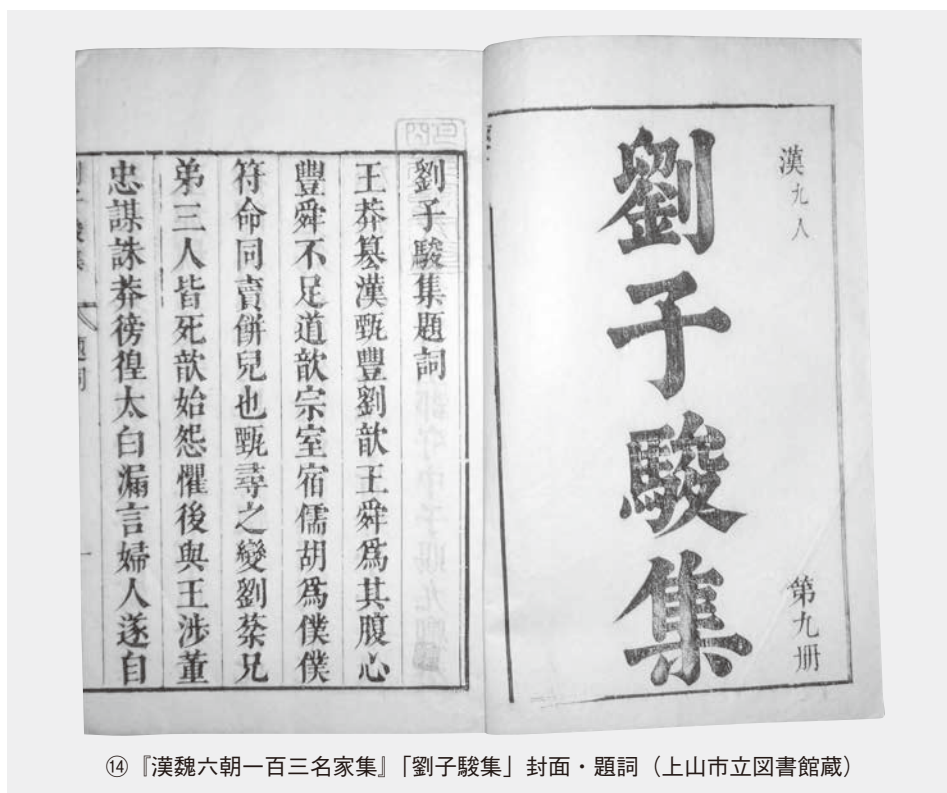 漢九人
第九册
劉子駿集
劉子駿集題詞
王莽篡漢甄豐劉歆王舜爲其腹心
豐舜不足道歆宗室宿儒胡爲僕僕
符命同賣餅兒也甄尋之變劉棻兄
弟三人皆死歆始怨懼後與王涉董
忠謀誅莽徬徨太白漏言婦人遂自
⑭『漢魏六朝一百三名家集』「劉子駿集」封面・題詞（上山市立図書館蔵）